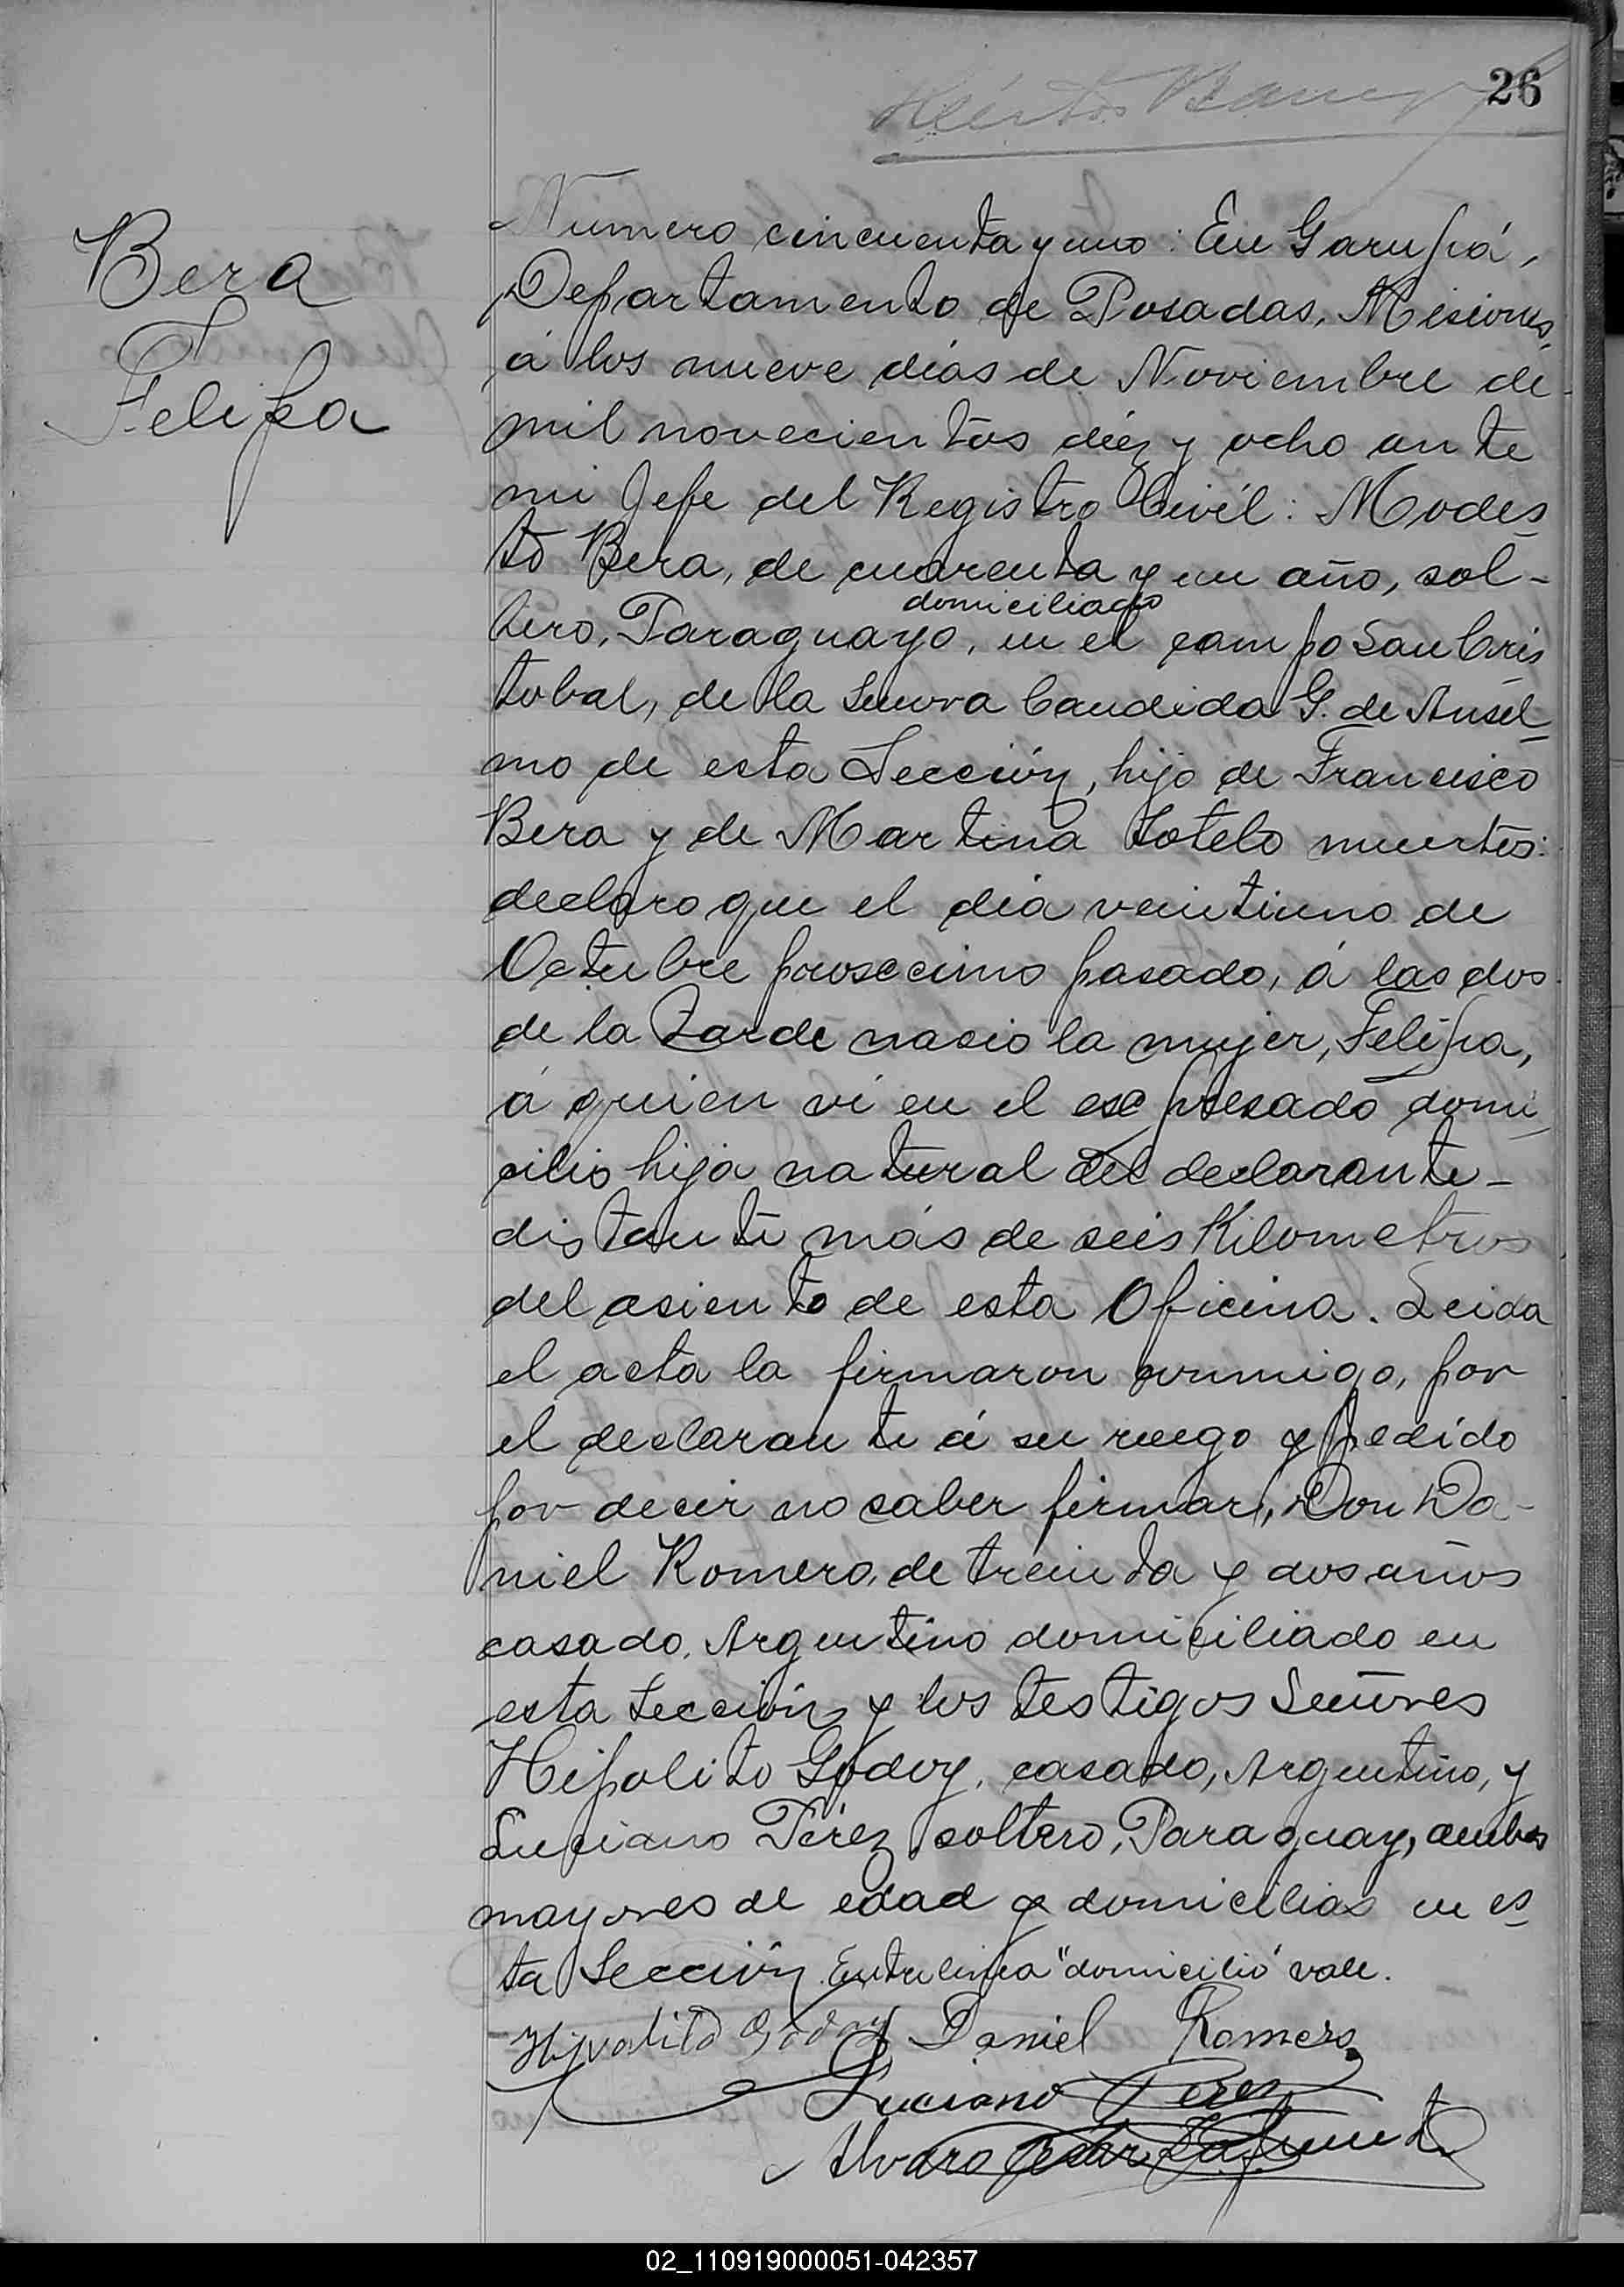 26
Bera
Felipa
Número cincuenta y uno: En Garupá,
Departamento de Posadas, Misiones,
á los nueve días de Noviembre de
mil novecientos diéz y ocho ante
mi Jefe del Registro Civíl: Modes
to Bera, de cuarenta y un año, sol-
domiciliado
tero, Paraguayo, en el campo San Cris
tobal, de la Senora Candida G. de Ansel
mo de esta Sección, hijo de Francisco
Bera y de Martina Sotelo muertos:
declaro que el día veintiuno de
Octubre procscimo pasado, á las dos
de la Tarde nacio la mujer, Felipa,
á quien ví en el excpresado domi
cilio hija natural del declarante-
distante más de seis Kilometros
del asiento de esta Oficina. Leida
el acta la firmaron conmigo, por
el declarante á su ruego y pedído
por decir no saber firmar, Don Da-
niel Romero, de treinta y dos años
casado, Argentino domiciliado en
esta Sección y los testigos Señores
Hipolito Godoy, casado, Argentino, y
Luciano Pérez, soltero, Paraguay, ambos
mayores de edad y domicilias en es
ta Sección. Entrelinea "domicilio" vale.
Hipolito Godoy Daniel Romero
Luciano Perez
Alvaro
02_110919000051-042357